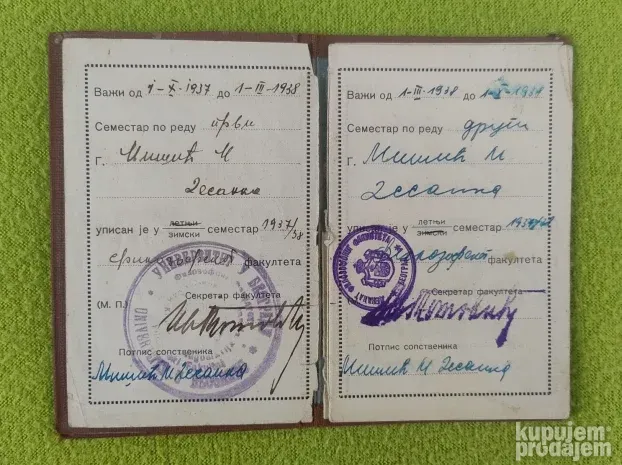 Важи од 1-X-1937 до 1-III-1938
Семестар по реду први
Г. Мишић М
Десанка
уписан је у летњи
зимски семестар 1937/38
филозофског факултета
(М. П.) Секретар факултета
Потпис сопственика
Мишић М Десанка
УНИВЕРЗИТЕТ У
Важи од 1-III-1938 до
Семестар по реду други
Г. Мишић М
Десанка
уписан је у летњи
зимски семестар 1937/38
факултета
Секретар факултета
Потпис сопственика
Мишић М Десанка
kupujem
prodajem